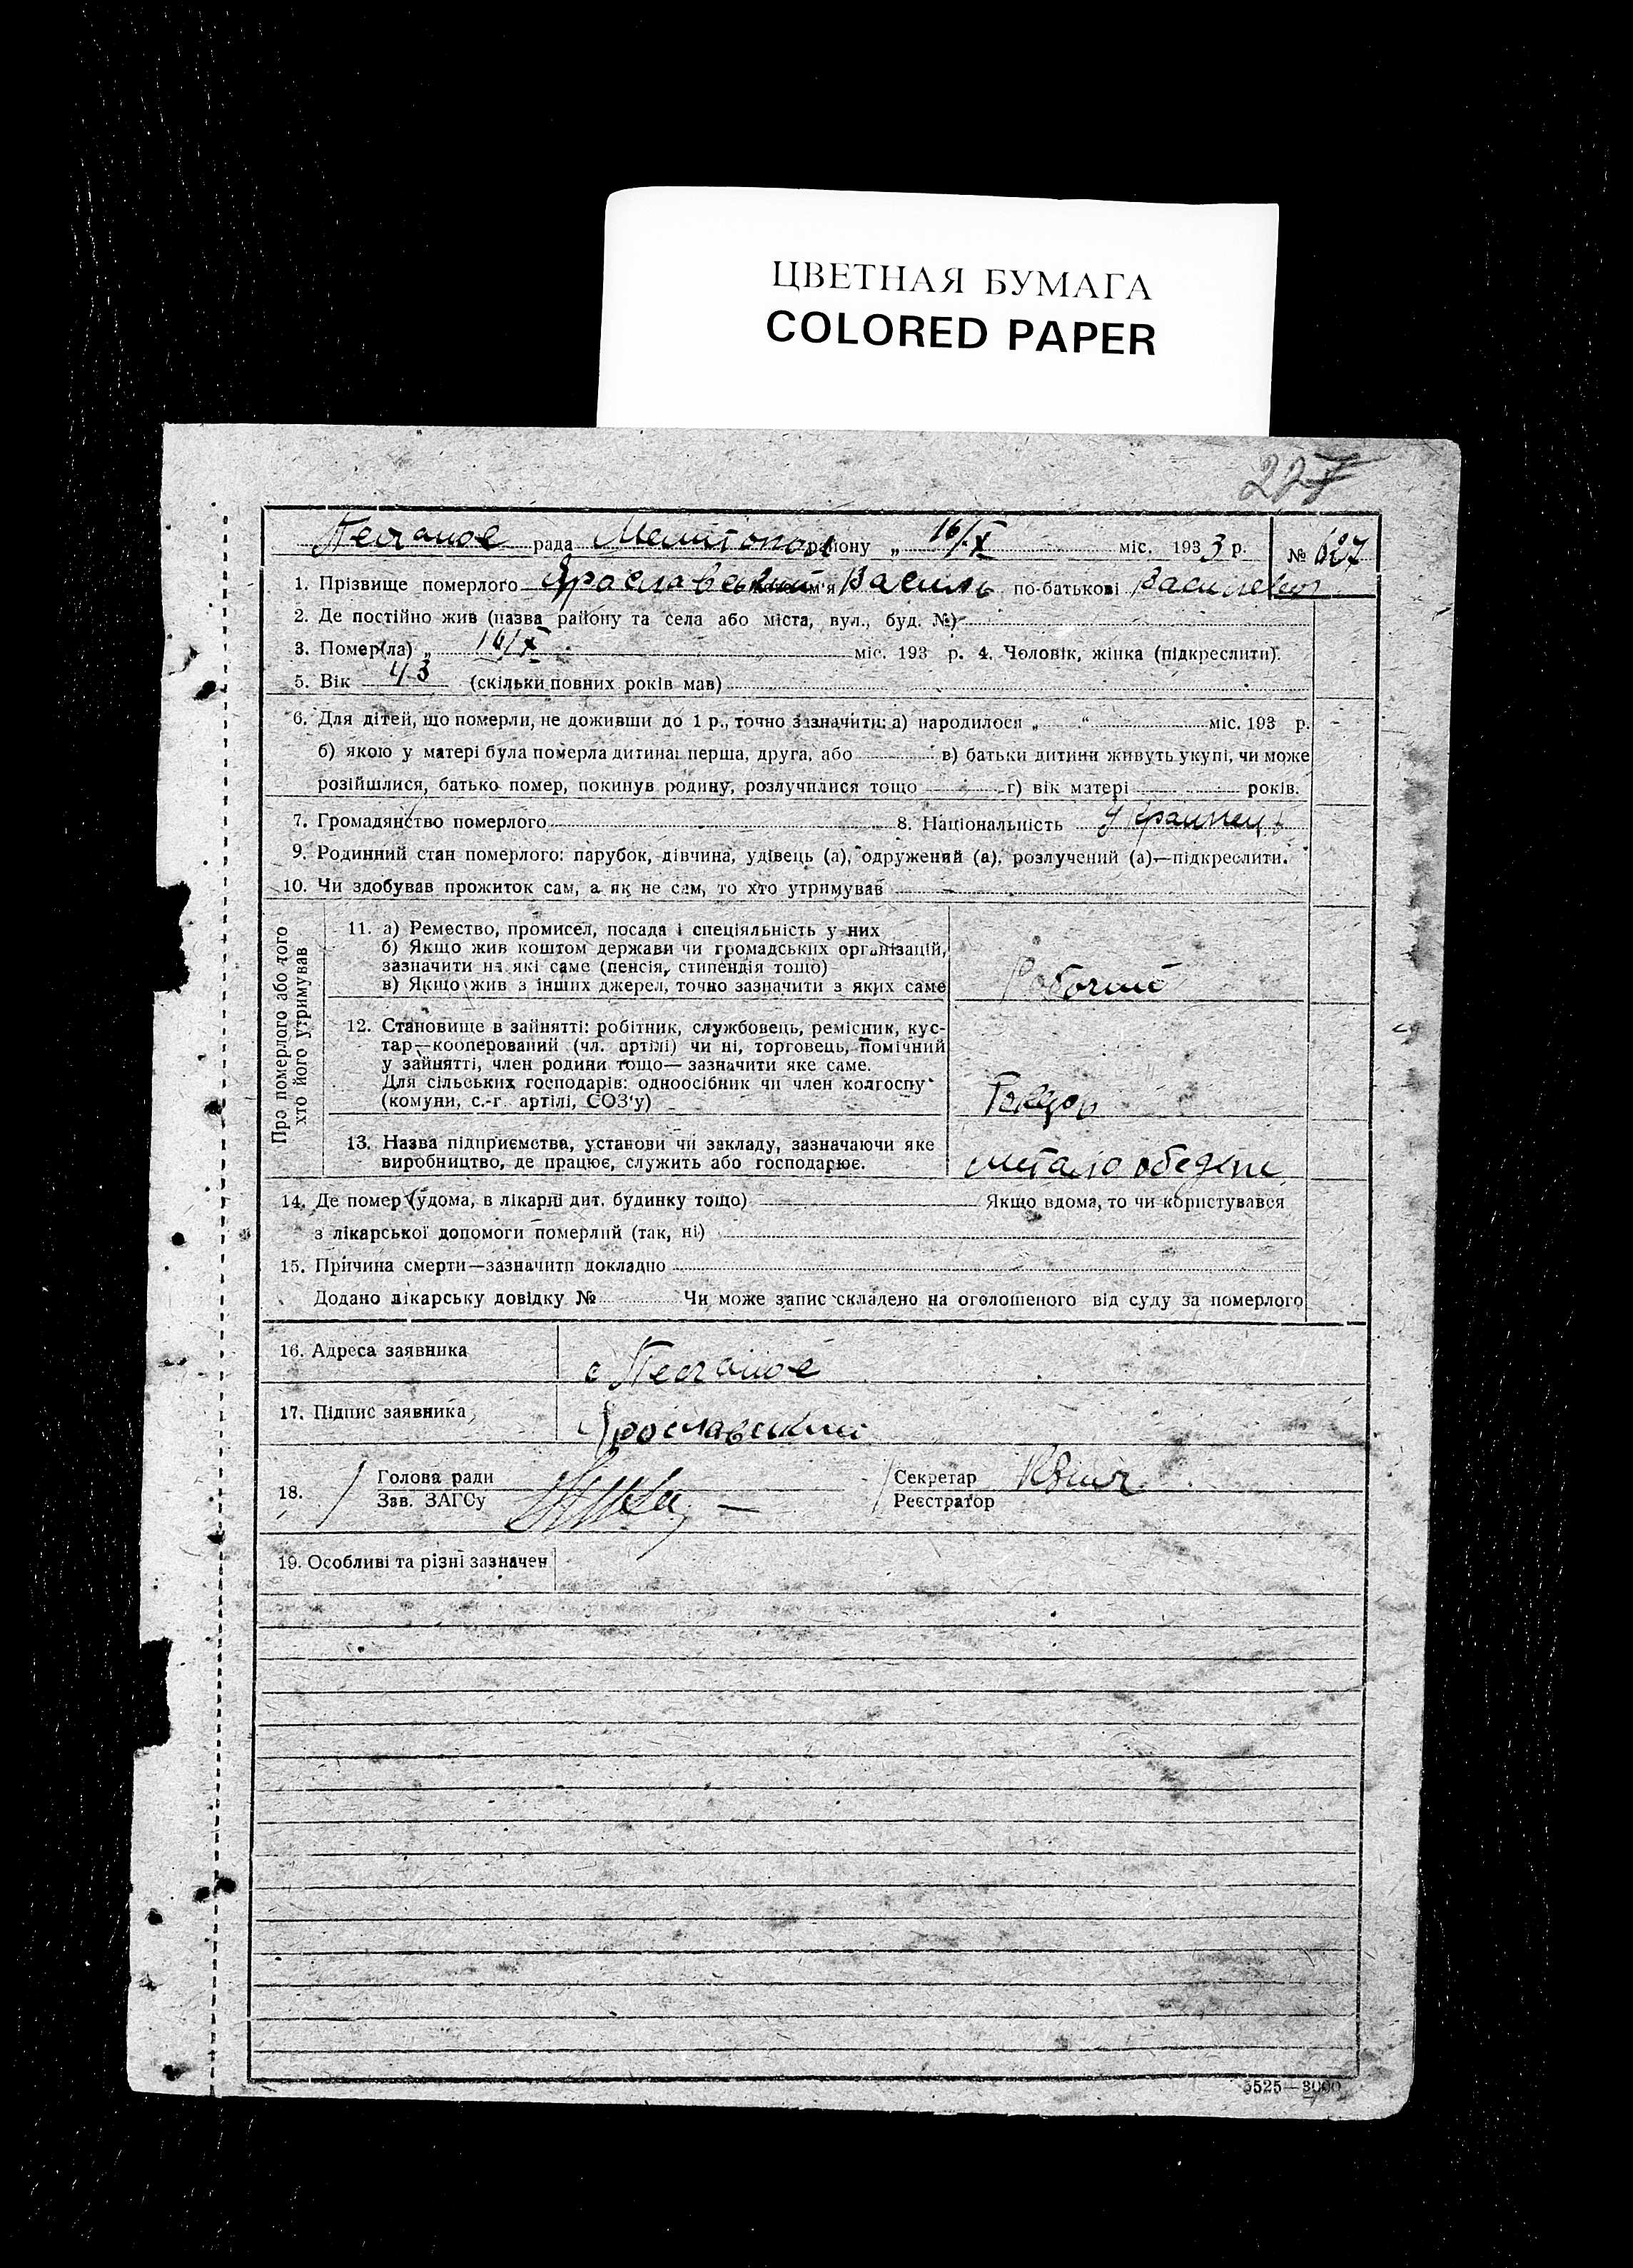 ЦВЕТНАЯ БУМАГА
COLORED PAPER
227
Песчаное рада Мелитопол району „ 16/X міс. 1933 р. №
1. Прізвище померлого Ярославский ім'я Василь по-батькові Василевич
2. Де постійно жив (назва району та села або міста, вул., буд. №)
3. Помер(ла) „ 16/X міс. 193 р. 4. Чоловік, жінка (підкреслити).
5. Вік 43 (скільки повних років мав)
6. Для дітей, що померли, не доживши до 1 р., точно зазначити: а) народилося „ “ міс. 193 р.
б) якою у матері була померла дитина: перша, друга, або в) батьки дитини живуть укупі, чи може
розійшлися, батько помер, покинув родину, розлучилися тощо г) вік матері років.
7. Громадянство померлого 8. Національність Украинець
9. Родинний стан померлого: парубок, дівчина, удівець (а), одружений (а), розлучений (а)—підкреслити.
10. Чи здобував прожиток сам, а як не сам, то хто утримував
Про померлого або того
хто його утримував
11. а) Ремество, промисел, посада і спеціяльність у них
б) Якщо жив коштом держави чи громадських організацій,
зазначити на які саме (пенсія, стипендія тощо)
в) Якщо жив з інших джерел, точно зазначити з яких саме
Рабочий
12. Становище в зайнятті: робітник, службовець, ремісник, кус-
тар—кооперований (чл. артілі) чи ні, торговець, помічний
у зайнятті, член родини тощо— зазначити яке саме.
Для сільських господарів: одноосібник чи член колгоспу
(комуни, с.-г. артілі, СОЗ'у)
13. Назва підприємства, установи чи закладу, зазначаючи яке
виробництво, де працює, служить або господарює.
14. Де помер (удома, в лікарні дит. будинку тощо) Якщо вдома, то чи користувався
з лікарської допомоги померлий (так, ні)
15. Причина смерти—зазначити докладно
Додано лікарську довідку № Чи може запис складено на оголошеного від суду за померлого
16. Адреса заявника
с Песчаное
17. Підпис заявника
Ярославський
18. Голова ради Секретар
Зав. ЗАГСу Реєстратор
19. Особливі та різні зазначен
5525—3000